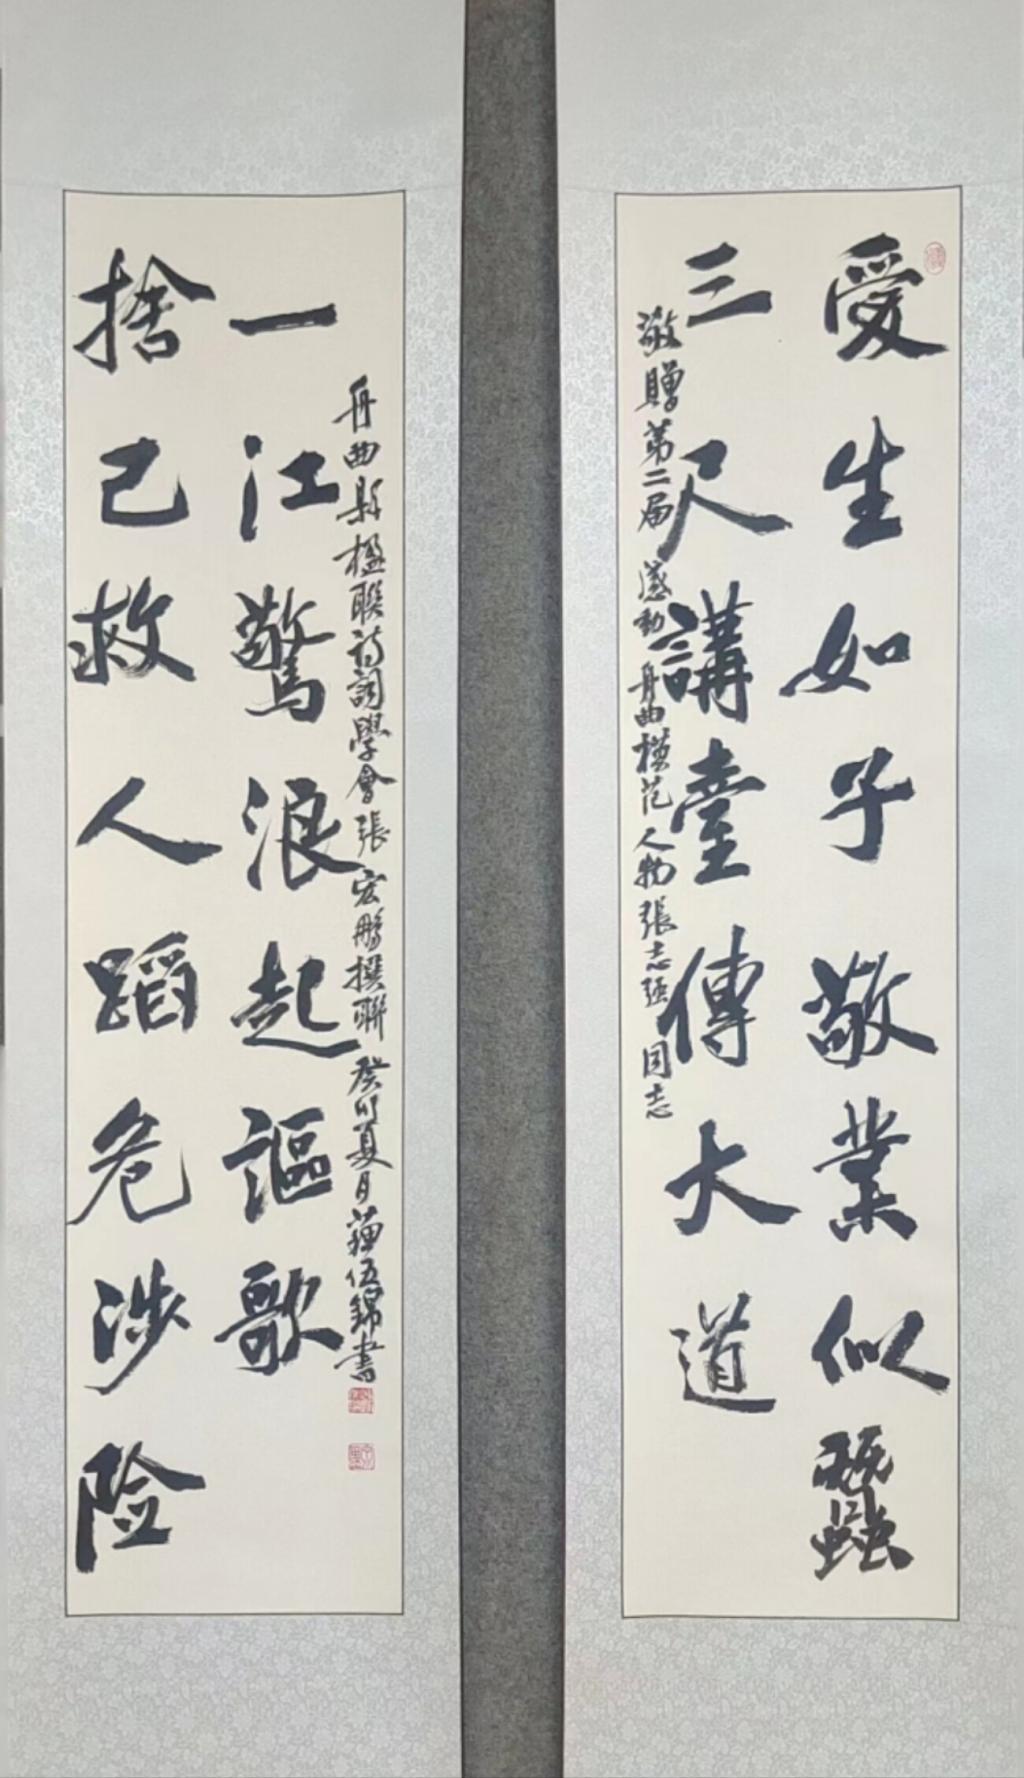 愛生如子敬業似蠶
三尺講臺傳大道
敬贈第二届感動舟曲模范人物張志强同志
捨己救人蹈危涉险
一江驚浪起謳歌
舟曲縣楹聯詩詞學會張宏鵬撰聯癸卯夏月薛伍錦書